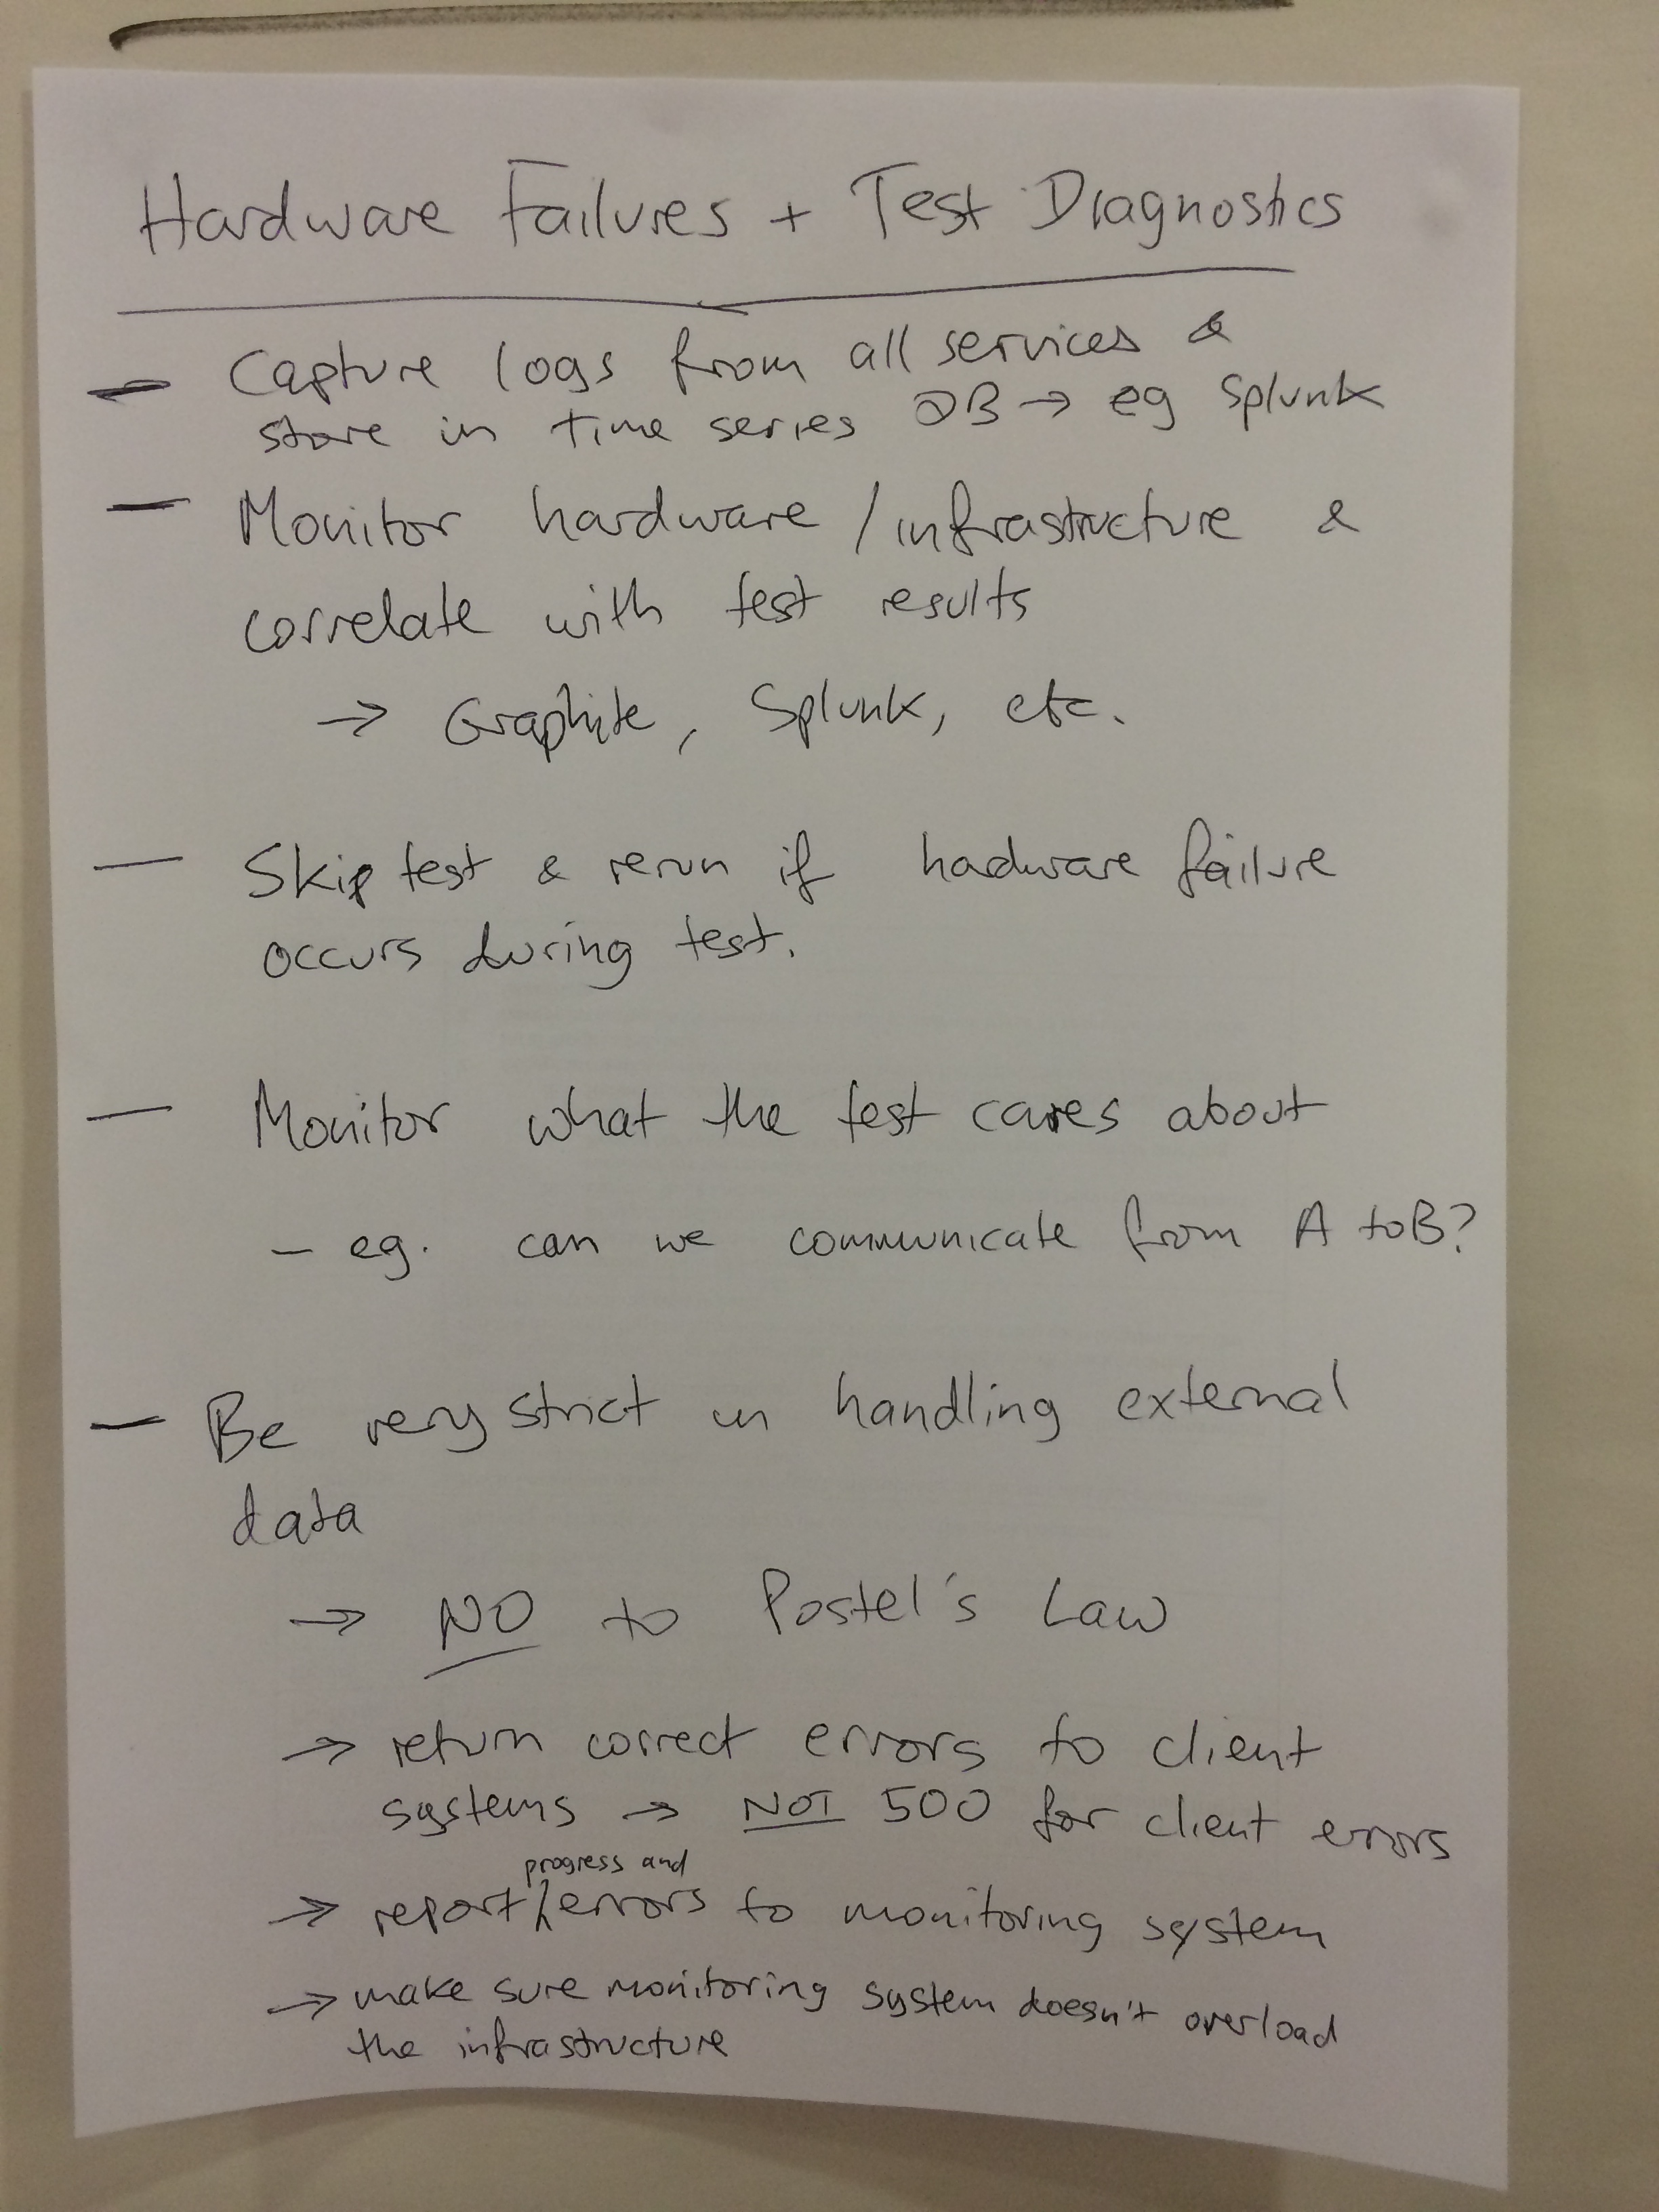 Hardware Failures + Test Diagnostics
- Capture logs from all services &
store in time series DB → eg Splunk
- Monitor hardware / infrastructure &
correlate with test results
→ Graphite, Splunk, etc.
- Skip test & rerun if hardware failure
occurs during test.
- Monitor what the test cares about
- eg. can we communicate from A to B?
- Be very strict in handling external
data
→ NO to Postel's Law
→ return correct errors to client
systems → NOT 500 for client errors
progress and
→ report / errors to monitoring system
→ make sure monitoring system doesn't overload
the infrastructure